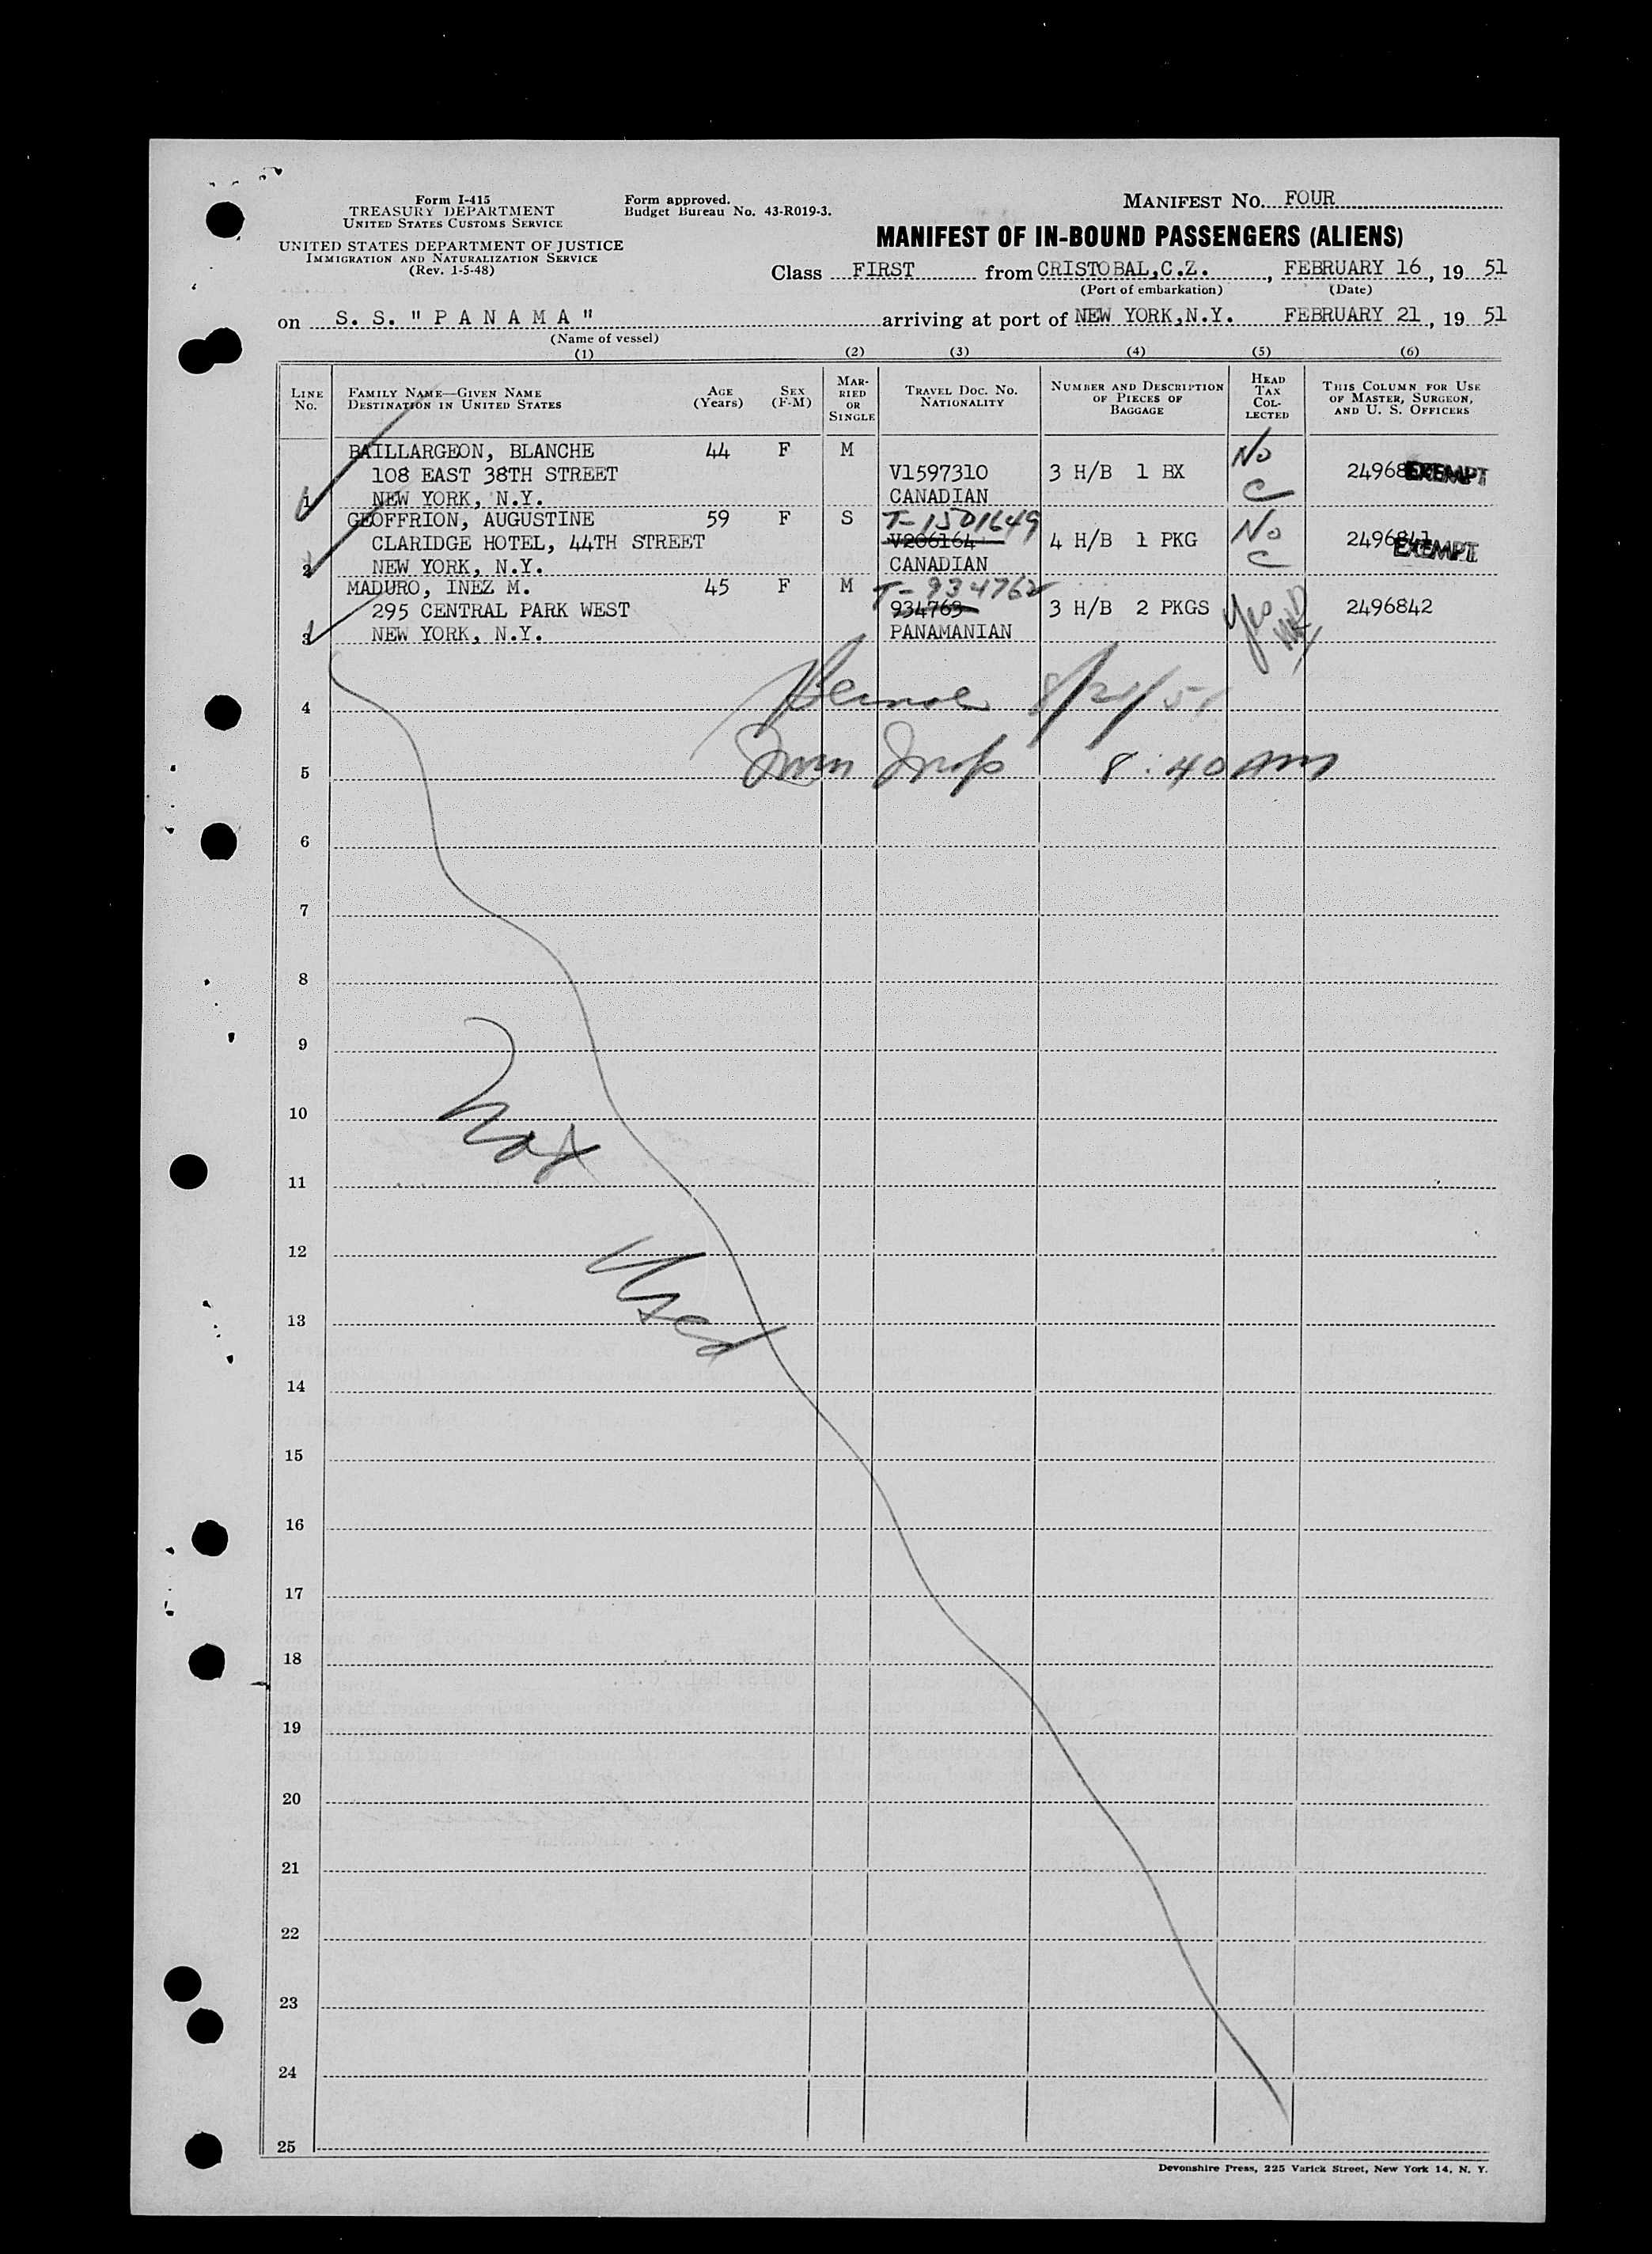 Form I-415
TREASURY DEPARTMENT
UNITED STATES CUSTOMS SERVICE
UNITED STATES DEPARTMENT OF JUSTICE
IMMIGRATION AND NATURALIZATION SERVICE
(Rev. 1-5-48)
Form approved.
Budget Bureau No. 43-R019-3.
MANIFEST NO. FOUR
MANIFEST OF IN-BOUND PASSENGERS (ALIENS)
Class FIRST from CRISTOBAL,C.Z., FEBRUARY 16, 19 51
(Port of embarkation) (Date)
on S. S. "P A N A M A" arriving at port of NEW YORK,N.Y. FEBRUARY 21, 19 51
(Name of vessel)
(1) (2) (3) (4) (5) (6)
LINE NO.
FAMILY NAME—GIVEN NAME
DESTINATION IN UNITED STATES
AGE (Years)
SEX (F-M)
MARRIED OR SINGLE
TRAVEL DOC. NO.
NATIONALITY
NUMBER AND DESCRIPTION OF PIECES OF BAGGAGE
HEAD TAX COLLECTED
THIS COLUMN FOR USE OF MASTER, SURGEON, AND U. S. OFFICERS
BAILLARGEON, BLANCHE 44 F M No
108 EAST 38TH STREET V1597310 3 H/B 1 BX 24968 EXEMPT
1 NEW YORK, N.Y. CANADIAN C
GEOFFRION, AUGUSTINE 59 F S T-1501649 No
CLARIDGE HOTEL, 44TH STREET V206164 4 H/B 1 PKG 2496841 EXEMPT
2 NEW YORK, N.Y. CANADIAN C
MADURO, INEZ M. 45 F M T-934762
295 CENTRAL PARK WEST 934763 3 H/B 2 PKGS Yes 2496842
3 NEW YORK, N.Y. PANAMANIAN
4
Imm Insp 8:40 AM
5
6
7
8
9
10
Not
11
12
Used
13
14
15
16
17
18
19
20
21
22
23
24
25
Devonshire Press, 225 Varick Street, New York 14, N. Y.